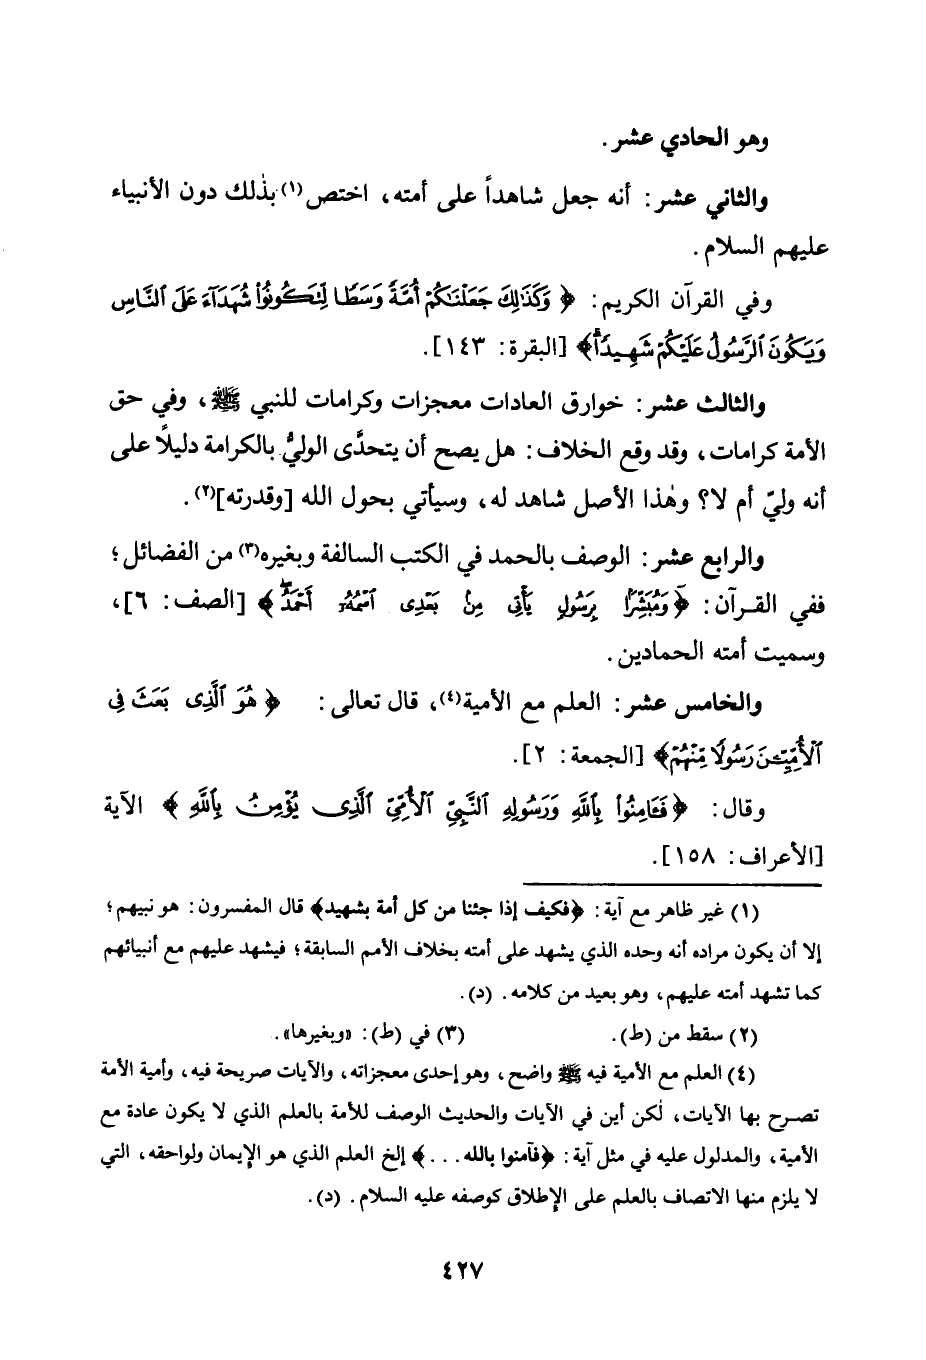 وهو الحادي عشر.
والثاني عشر: أنه جعل شاهداً على أمته، اختص(١) بذٰلك دون الأنبياء
عليهم السلام.
وفي القرآن الكريم: ﴿ وَكَذَٰلِكَ جَعَلْنَٰكُمْ أُمَّةً وَسَطًا لِّتَكُونُوا۟ شُهَدَآءَ عَلَى ٱلنَّاسِ
وَيَكُونَ ٱلرَّسُولُ عَلَيْكُمْ شَهِيدًاۗ﴾ [البقرة: ١٤٣].
والثالث عشر: خوارق العادات معجزات وكرامات للنبي ﷺ، وفي حق
الأمة كرامات، وقد وقع الخلاف: هل يصح أن يتحدَّى الوليُّ بالكرامة دليلًا على
أنه وليّ أم لا؟ وهٰذا الأصل شاهد له، وسيأتي بحول الله [وقدرته](٢).
والرابع عشر: الوصف بالحمد في الكتب السالفة وبغيره(٣) من الفضائل؛
ففي القرآن: ﴿وَمُبَشِّرًۢا بِرَسُولٍ يَأْتِى مِنۢ بَعْدِى ٱسْمُهُۥٓ أَحْمَدُۖ ﴾ [الصف: ٦]،
وسميت أمته الحمادين.
والخامس عشر: العلم مع الأمية(٤)، قال تعالى: ﴿ هُوَ ٱلَّذِى بَعَثَ فِى
ٱلْأُمِّيِّـۧنَ رَسُولًا مِّنْهُمْ﴾ [الجمعة: ٢].
وقال: ﴿فَـَٔامِنُوا۟ بِٱللَّهِ وَرَسُولِهِ ٱلنَّبِىِّ ٱلْأُمِّىِّ ٱلَّذِى يُؤْمِنُ بِٱللَّهِ ﴾ الآية
[الأعراف: ١٥٨].
(١) غير ظاهر مع آية: ﴿فكيف إذا جئنا من كل أمة بشهيد﴾ قال المفسرون: هو نبيهم؛
إلا أن يكون مراده أنه وحده الذي يشهد على أمته بخلاف الأمم السابقة؛ فيشهد عليهم مع أنبيائهم
كما تشهد أمته عليهم، وهو بعيد من كلامه. (د).
(٢) سقط من (ط). (٣) في (ط): «وبغيرها».
(٤) العلم مع الأمية فيه ﷺ واضح، وهو إحدى معجزاته، والآيات صريحة فيه، وأمية الأمة
تصرح بها الآيات، لٰكن أين في الآيات والحديث الوصف للأمة بالعلم الذي لا يكون عادة مع
الأمية، والمدلول عليه في مثل آية: ﴿فآمنوا بالله. . .﴾ إلخ العلم الذي هو الإيمان ولواحقه، التي
لا يلزم منها الاتصاف بالعلم على الإطلاق كوصفه عليه السلام. (د).
٤٢٧